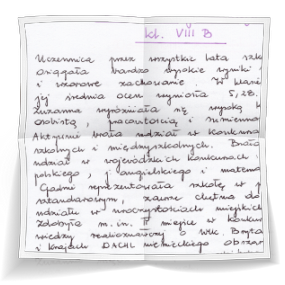 kl. VIII B
Uczennica przez wszystkie lata szk
osiągała bardzo wysokie wyniki
i wzorowe zachowanie. W klasie
jej średnia ocen wynosiła 5,28.
Zuzanna wyróżniała się wysoką k
osobistą, pracowitością i sumienno
Aktywnie brała udział w konkursa
szkolnych i międzyszkolnych. Brała
udział w wojewódzkich konkursach
polskiego, j. angielskiego i matema
Godnie reprezentowała szkołę w p
sztandarowym, zawsze chętna do
udziału w uroczystościach miejskich
Zdobyła m. in. II miejsce w konkur
wiedzy realioznawczej o Wlk. Bryta
i krajach DACHL niemieckiego obszar